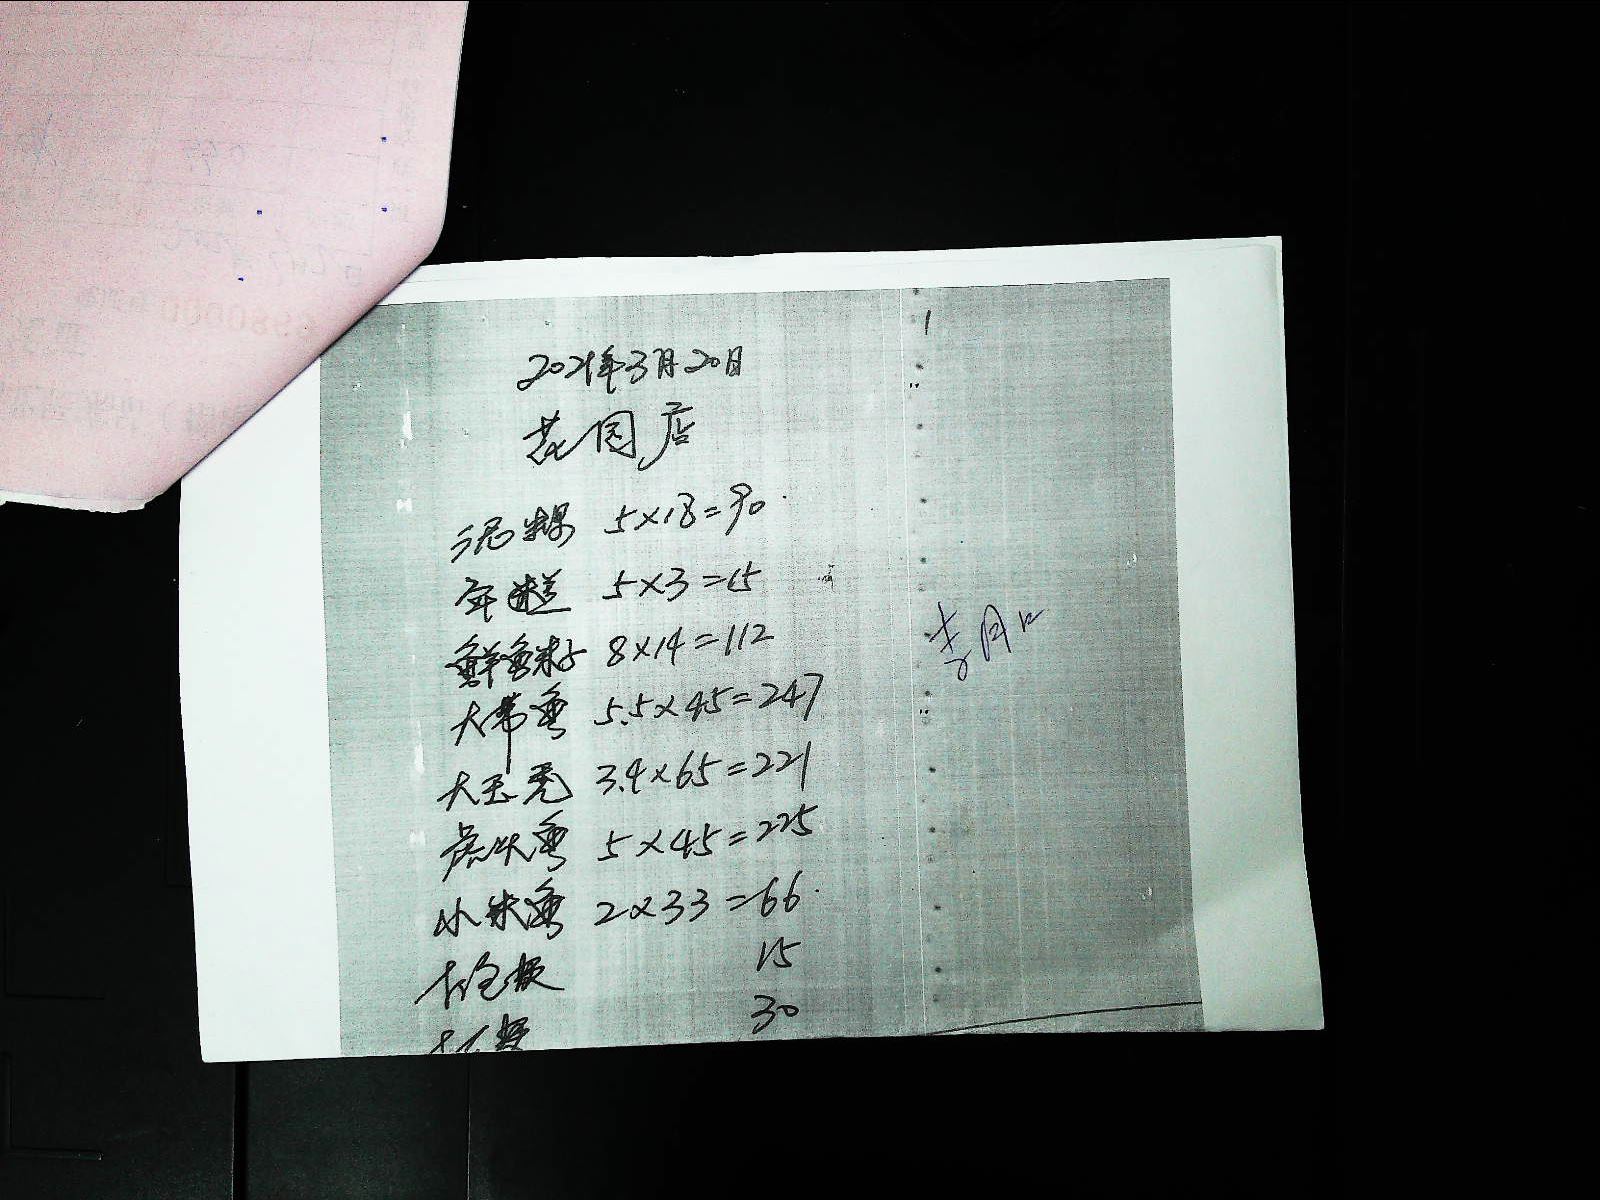 2021年3月20日
花园店
泥螺 5×18=90
年糕 5×3=15
鲜鱼籽 8×14=112
大带鱼 5.5×45=247
大玉秃 3.4×65=221
虎头鱼 5×45=225
小米鱼 2×33=66
15
30